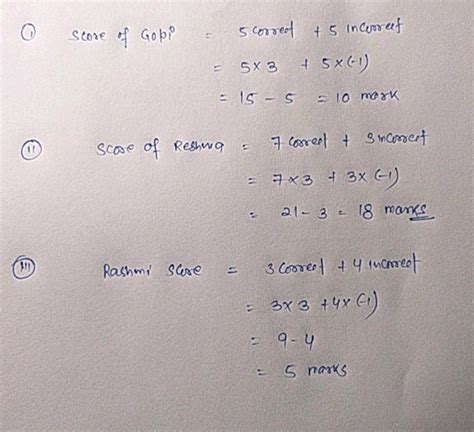 (i) Score of Gopi = 5 correct + 5 incorrect
= 5×3 + 5×(-1)
= 15 - 5 = 10 mark
(ii) Score of Reshma = 7 correct + 3 incorrect
= 7×3 + 3×(-1)
= 21 - 3 = 18 marks
(iii) Rashmi score = 3 correct + 4 incorrect
= 3×3 + 4×(-1)
= 9 - 4
= 5 marks